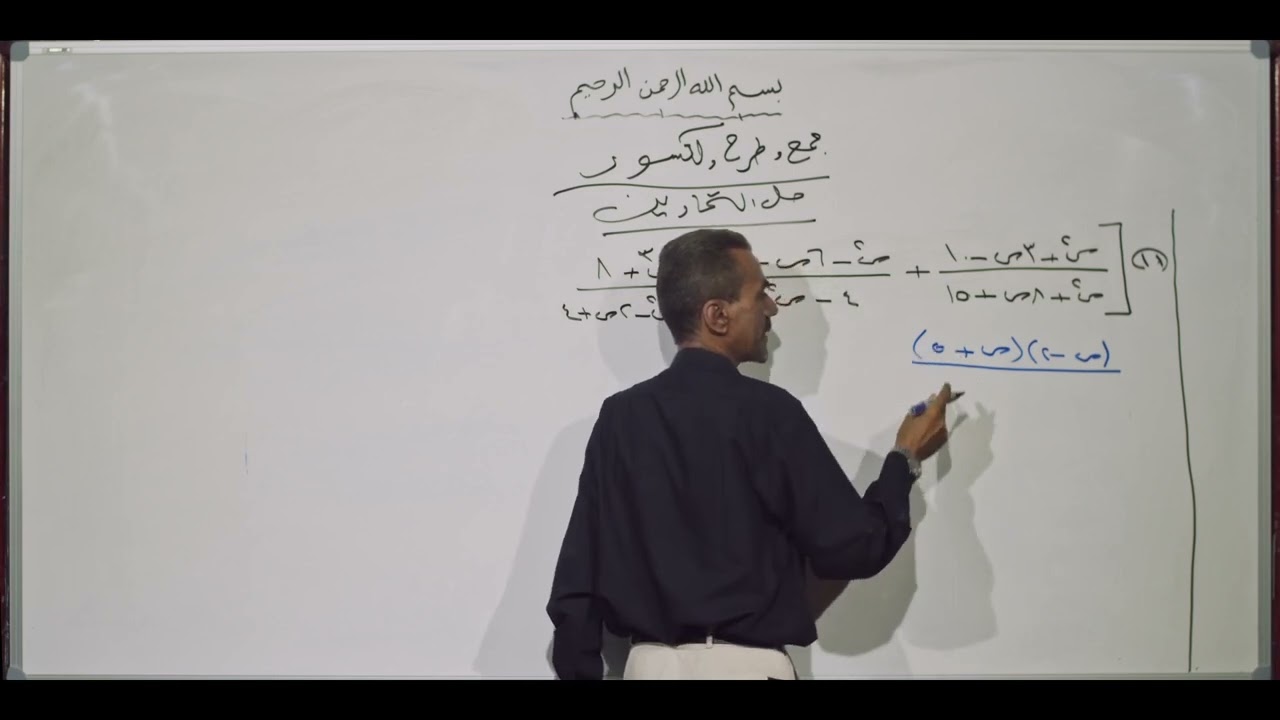 بسم الله الرحمن الرحيم
جمع وطرح الكسور
حل التمارين
(٢) [ س٢ + ٣س - ١٠ + س٢ - ٦س - ٣ + ٨
س٢ + ٨س + ١٥ ٤ - س٢ - ٢س + ٤
(س - ٢)(س + ٥)